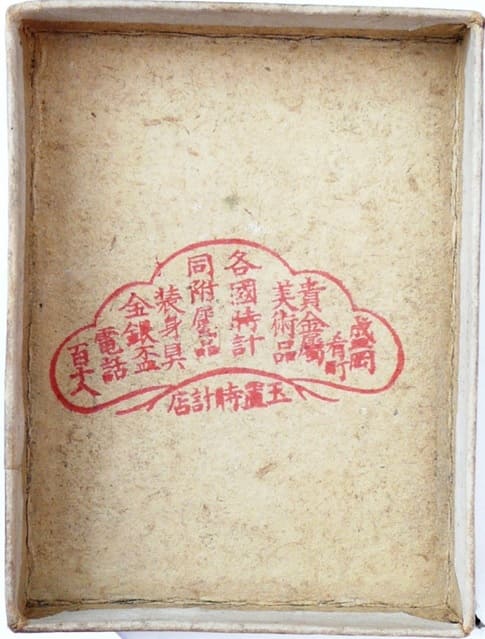 盛岡
肴町
貴金屬
美術品
各國時計
同附屬品
装身具
金銀盃
電話
百
玉置時計店